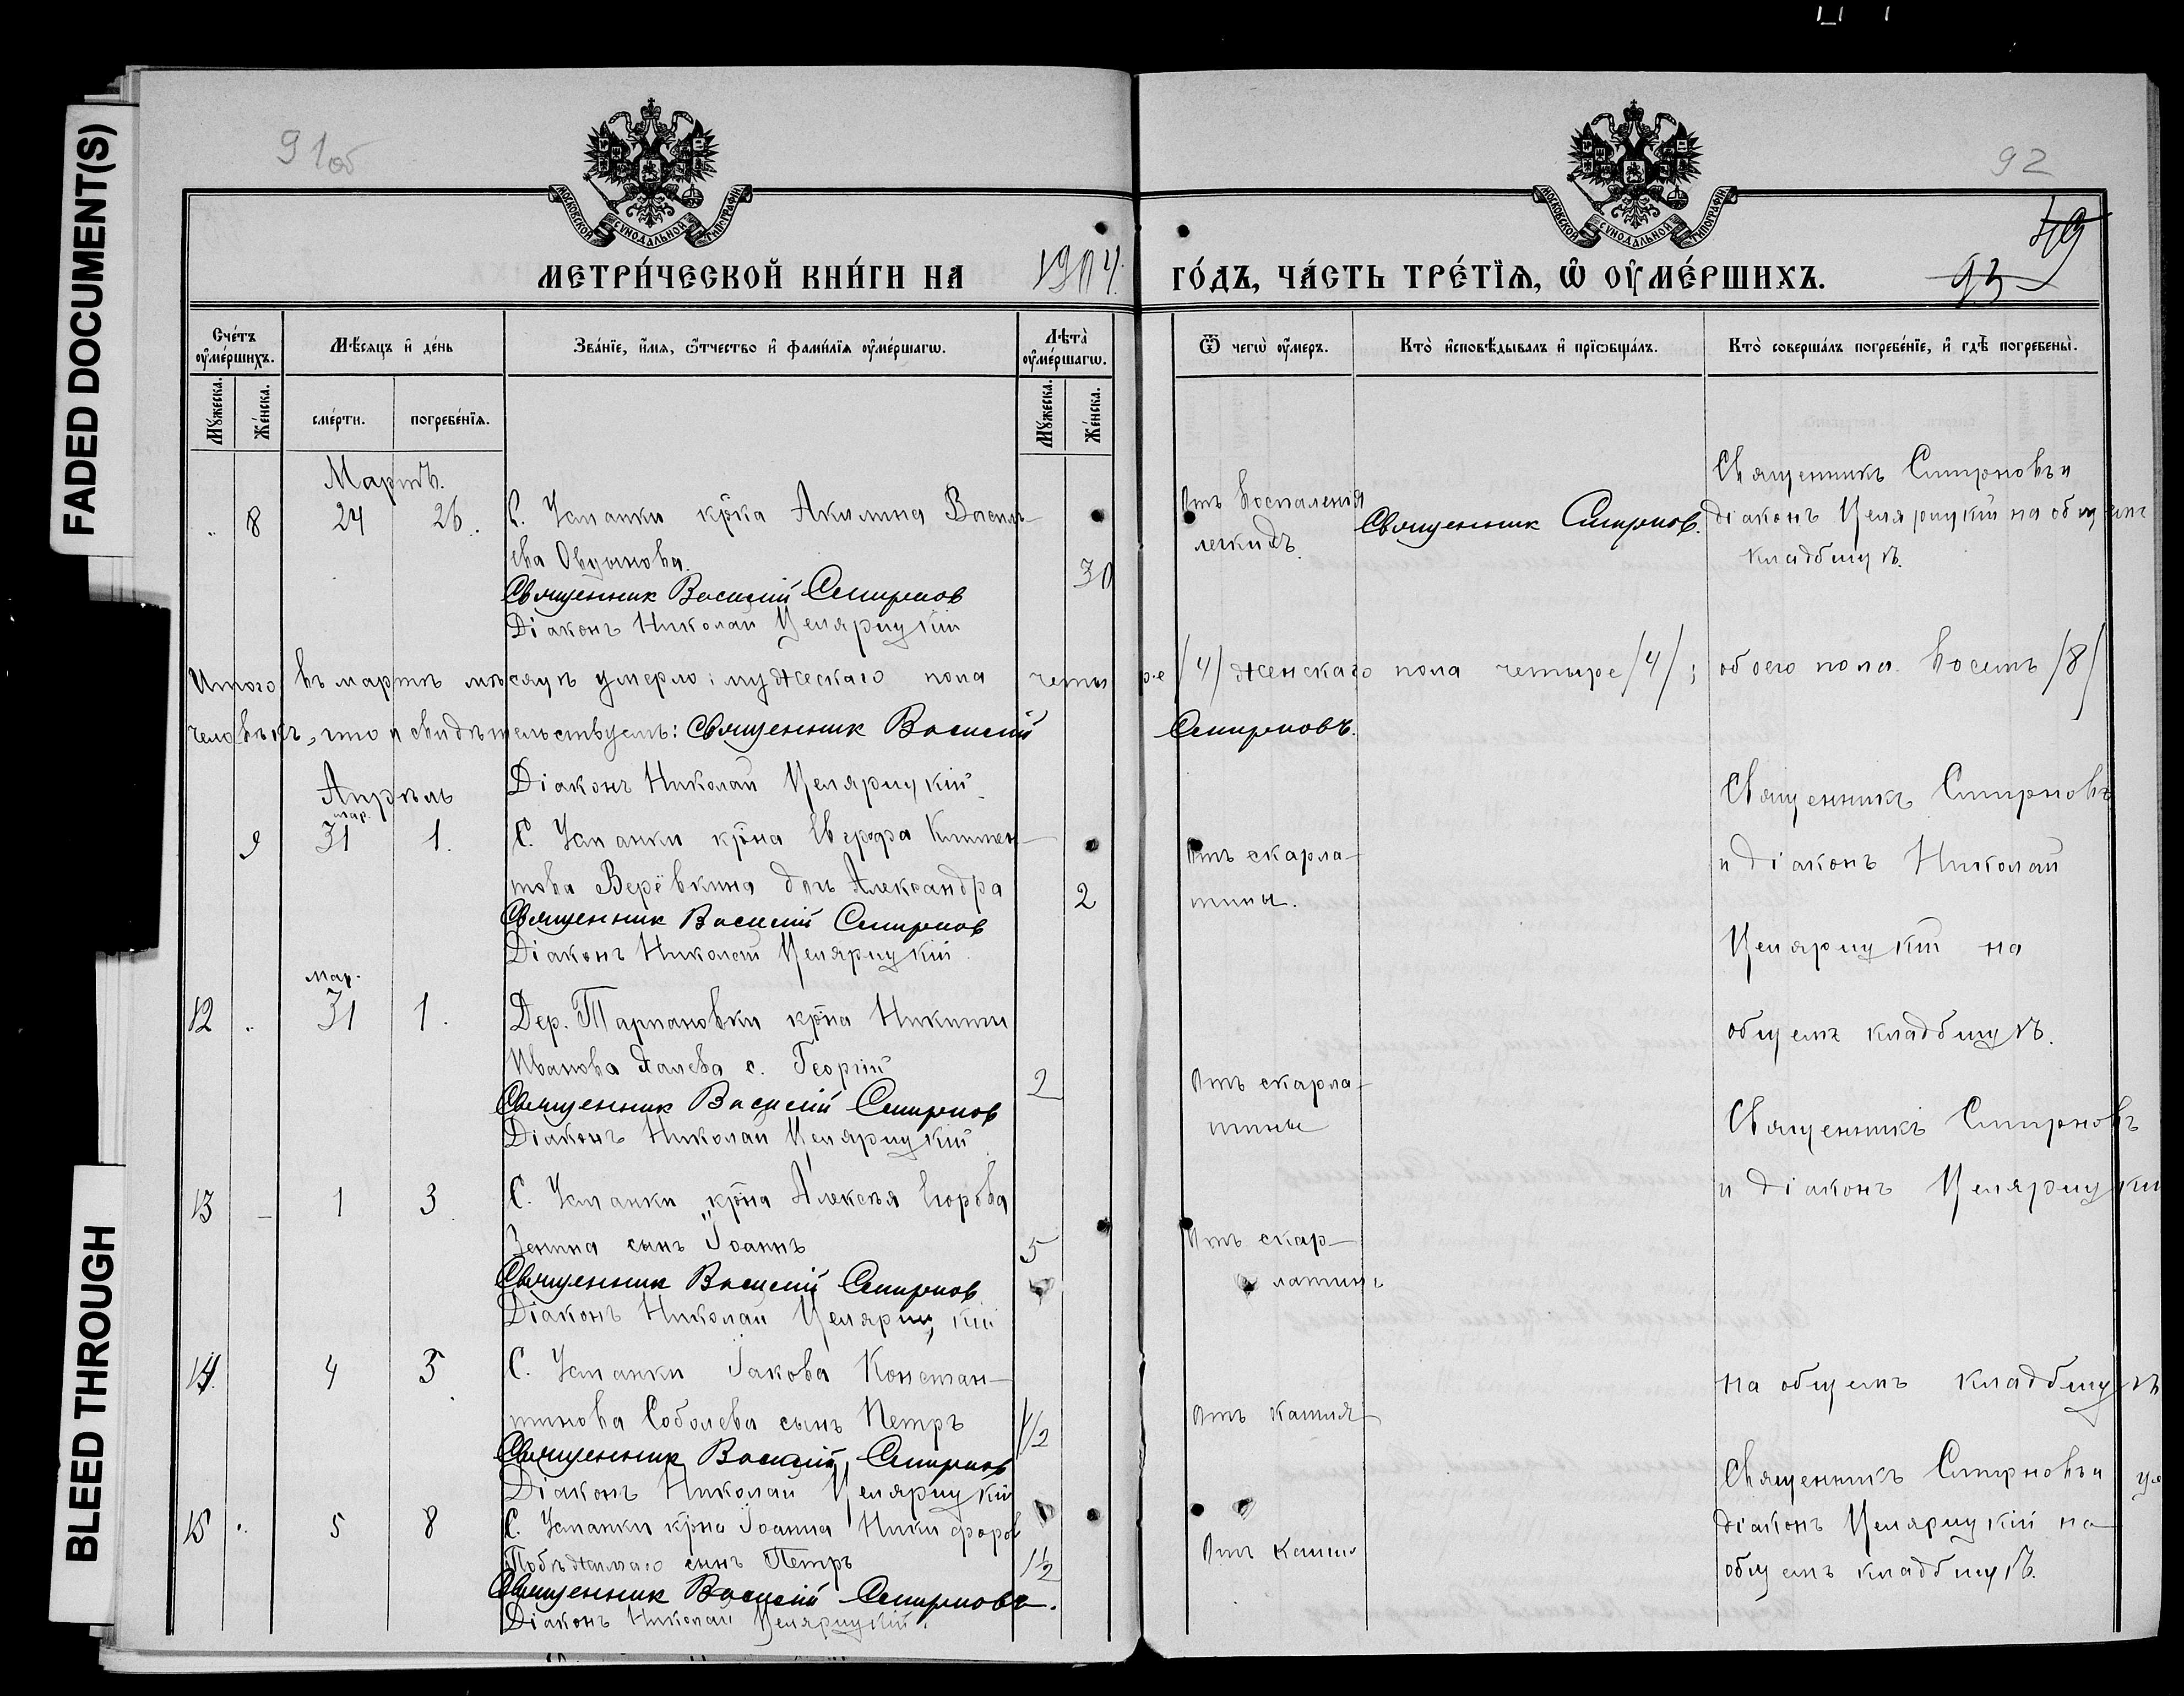 FADED DOCUMENT(S)
BLEED THROUGH
91об
92
МОСКОВСКОЙ СѴНОДАЛЬНОЙ ТИПОГРАФІИ
МОСКОВСКОЙ СѴНОДАЛЬНОЙ ТИПОГРАФІИ
49
93
МЕТРИ́ЧЕСКОЙ КНИ́ГИ НА 1904 ГО́ДЪ, ЧА́СТЬ ТРЕ́ТЇѦ, Ѡ҆ ОУ҆МЕ́РШИХЪ.
Сче́тъ оу҆ме́ршихъ.
Мꙋ́жеска.
Же́нска.
Мѣ́сяцъ и҆ де́нь
сме́рти.
погребе́нїѧ.
Зва́нїе, и҆́мѧ, ѻ҆́тчество и҆ фами́лїѧ оу҆ме́ршагѡ.
Лѣ̑та̀ оу҆ме́ршагѡ.
Мꙋ́жеска.
Же́нска.
Ѿ чегѡ̀ оу҆́меръ.
Кто̀ и҆сповѣ́дывалъ и҆ прїѡбща́лъ.
Кто̀ соверша́лъ погребе́нїе, и҆ гдѣ̀ погребены̀.
Мартъ.
8 24 26. С. Усманки кр-ка Акилина Василь-
ева
30
Священник Василий Смирнов
Діаконъ Николай Целярицкій
Отъ воспаленія
легкихъ.
Священник Смирнов.
Священникъ Смирновъ и
діаконъ Целярицкій на общемъ
кладбищѣ.
Итого въ мартѣ мѣсяцѣ умерло: мужескаго пола четыре /4/ женскаго пола четыре /4/; обоего пола восемь /8/
человѣкъ, что и свидѣтельствуемъ: Священник Василий Смирновъ.
Діаконъ Николай Целярицкій
Апрѣль
мар.
9 31 1. С. Усманки кр-на Климен-
това Верёвкина дочь Александра 2
Священник Василий Смирнов
Діаконъ Николай Целярицкій
Отъ скарла-
тины.
Священникъ Смирновъ
и діаконъ Николай
Целярицкій на
общемъ кладбищѣ.
мар.
12 31 1. Дер. Тарпановки кр-на Никиты
Иванова с. Георгій 2
Священник Василий Смирнов
Діаконъ Николай Целярицкій
Отъ скарла-
тины
Священникъ Смирновъ
и діаконъ Целярицкій
13 1 3. С. Усманки кр-на Алексѣя Егорова
Зенина сынъ Іоаннъ 5
Священник Василий Смирнов
Діаконъ Николай Целярицкій
Отъ скар-
латины
14. 4 5. С. Усманки Іакова Констан-
тинова Соболева сынъ Петръ 1/2
Священник Василий Смирнов
Діаконъ Николай Целярицкій
Отъ кашля
на общемъ кладбищѣ
15 5 8 С. Усманки кр-на Іоанна Никифоров
сынъ Петръ 1 1/2
Священник Василий Смирновъ.
Діаконъ Николай Целярицкій.
Отъ кашля
Священникъ Смирновъ и
діаконъ Целярицкій на
общемъ кладбищѣ.